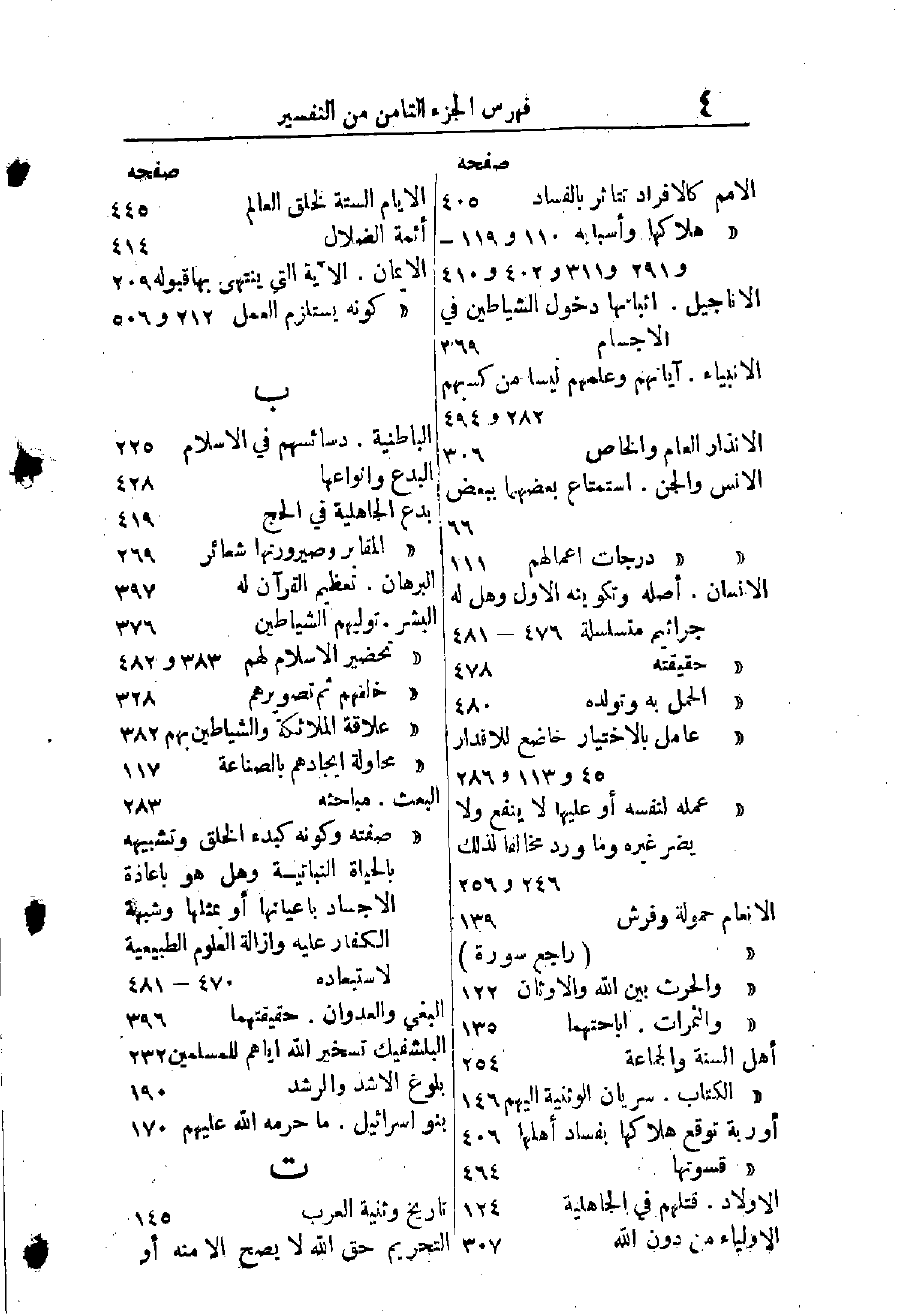 ٤
فهرس الجزء الثامن من التفسير
صفحه
الامم كالافراد تتاثر بالفساد ٤٠٥
» هلاكها وأسبابه ١١٠ و ١١٩ –
و٢٩١ و٣١١ و٤٠٢ و٤١٠
الاناجيل . اثباتها دخول الشياطين في
الاجسام ٣٦٩
الانبياء . آياتهم وعلمهم ليسا من كسبهم
٢٨٢ و ٤٩٤
الانذار العام والخاص ٣٠٦
الانس والجن . استمتاع بعضهما ببعض
٦٦
» » درجات اعمالهم ١١١
الانسان . أصله وتكوينه الاول وهل له
جراثيم متسلسلة ٤٧٦ – ٤٨١
» حقيقته ٤٧٨
» الحمل به وتولده ٤٨٠
» عامل بالاختيار خاضع للاقدار
٤٥ و ١١٣ و ٢٨٦
» عمله لنفسه أو عليها لا ينفع ولا
يضر غيره وما ورد مخالفا لذلك
٢٤٦ و ٢٥٦
الانعام حمولة وفرش ١٣٩
» ( راجع سورة )
» والحرث بين الله والاوثان ١٢٢
» والثمرات . اباحتهما ١٣٥
أهل السنة والجماعة ٢٥٤
» الكتاب . سريان الوثنية اليهم ١٤٦
أوربة توقع هلاكها بفساد أهلها ٤٠٦
» قسوتها ٤٦٤
الاولاد . قتلهم في الجاهلية ١٢٤
الاولياء من دون الله ٣٠٧
صفحه
الايام الستة لخلق العالم ٤٤٥
أئمة الضلال ٤١٤
الايمان . الآية التي ينتهى بها قبوله ٢٠٩
» كونه يستلزم العمل ٢١٢ و ٥٠٦
ب
الباطنية . دسائسهم في الاسلام ٢٢٥
البدع وانواعها ٤٢٨
بدع الجاهلية في الحج ٤١٩
» المقابر وصيرورتها شعائر ٢٦٩
البرهان . تعظيم القرآن له ٣٩٧
البشر . توليهم الشياطين ٣٧٦
» تحضير الاسلام لهم ٣٨٣ و ٤٨٢
» خلقهم ثم تصويرهم ٣٢٨
» علاقة الملائكة والشياطين بهم ٣٨٢
» محاولة ايجادهم بالصناعة ١١٧
البعث . مباحثه ٢٨٣
» صفته وكونه كبدء الخلق وتشبيهه
بالحياة النباتية وهل هو باعادة
الاجساد باعيانها أو بمثلها وشبهة
الكفار عليه وازالة العلوم الطبيعية
لاستبعاده ٤٧٠ – ٤٨١
البغي والعدوان . حقيقتهما ٣٩٦
البلشفيك تسخير الله اياهم للمسلمين ٢٣٢
بلوغ الاشد والرشد ١٩٠
بنو اسرائيل . ما حرمه الله عليهم ١٧٠
ت
تاريخ وثنية العرب ١٤٥
التحريم حق الله لا يصح الا منه أو